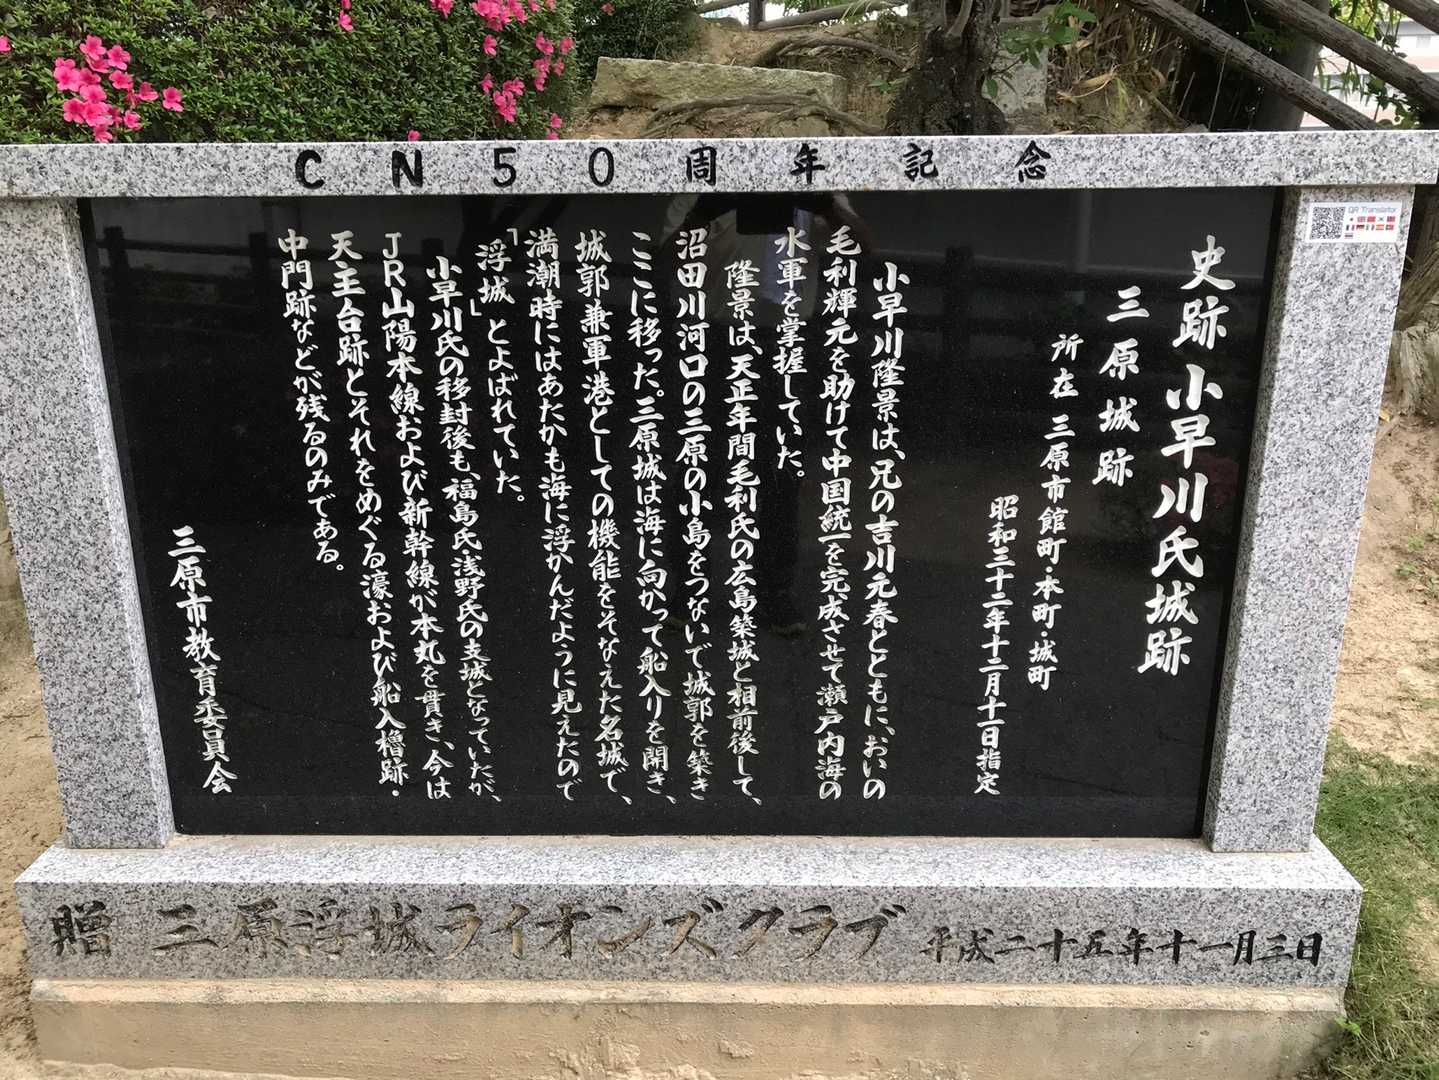 CN50周年記念
QR Translator
史跡 小早川氏城跡
三原城跡
所在 三原市館町・本町・城町
昭和三十二年十二月十一日指定
小早川隆景は、兄の吉川元春とともに、おいの
毛利輝元を助けて中国統一を完成させて瀬戸内海の
水軍を掌握していた。
隆景は、天正年間毛利氏の広島築城と相前後して、
沼田川河口の三原の小島をつないで城郭を築き
ここに移った。三原城は海に向かって船入りを開き、
城郭兼軍港としての機能をそなえた名城で、
満潮時にはあたかも海に浮かんだように見えたので
「浮城」とよばれていた。
小早川氏の移封後も、福島氏、浅野氏の支城となっていたが、
JR山陽本線および新幹線が本丸を貫き、今は
天主台跡とそれをめぐる濠および船入櫓跡・
中門跡などが残るのみである。
三原市教育委員会
贈 三原浮城ライオンズクラブ 平成二十五年十一月三日